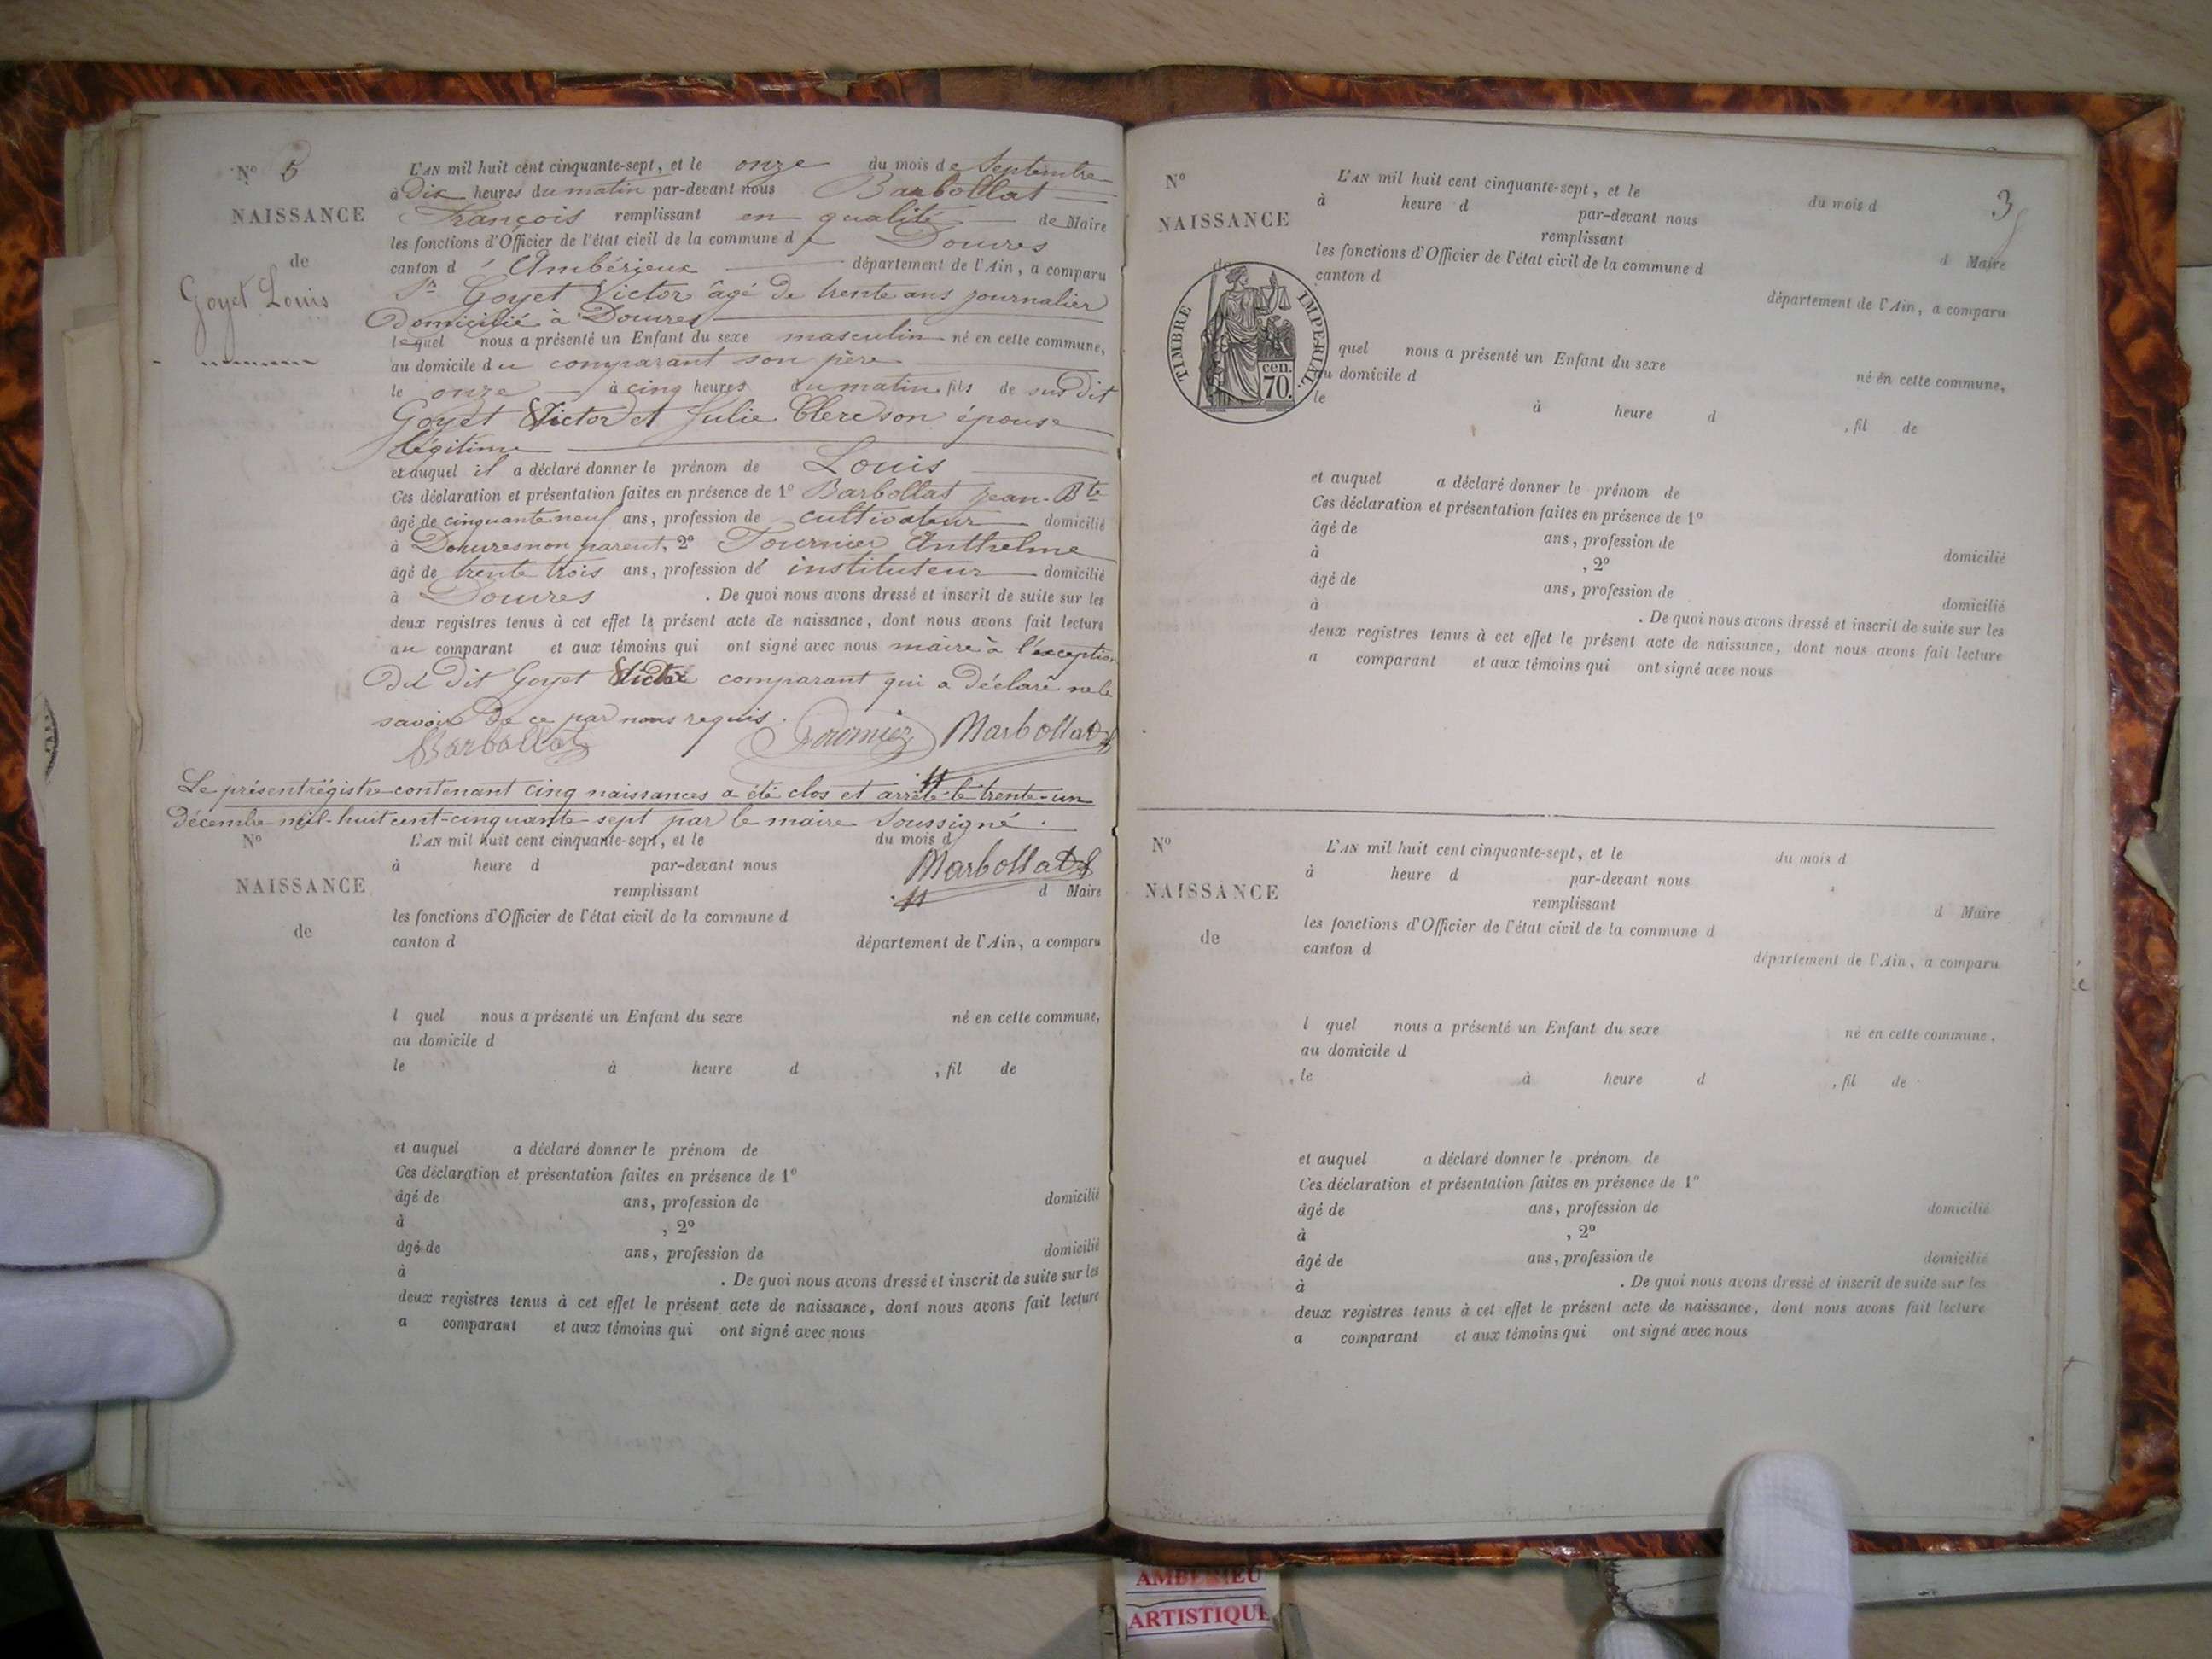 N° 5
NAISSANCE
de
Goyet Louis
L'AN mil huit cent cinquante-sept, et le onze du mois de Septembre
à Dix heures du matin par-devant nous Barbollat
François remplissant en qualité de Maire
les fonctions d'Officier de l'état civil de la commune de Douvres
canton d'Ambérieux département de l'Ain, a comparu
Sr Goyet Victor âgé de trente ans journalier
Domicilié à Douvres
lequel nous a présenté un Enfant du sexe masculin né en cette commune,
au domicile du comparant son père
le onze à cinq heures du matin, fils de sus dit
Goyet Victor et Julie Clerc son épouse
légitime
et auquel il a déclaré donner le prénom de Louis
Ces déclaration et présentation faites en présence de 1° Barbollat Jean-Bte
âgé de cinquante neuf ans, profession de cultivateur domicilié
à Douvres non parent, 2° Tournier Anthelme
âgé de trente trois ans, profession de instituteur domicilié
à Douvres . De quoi nous avons dressé et inscrit de suite sur les
deux registres tenus à cet effet le présent acte de naissance, dont nous avons fait lecture
au comparant et aux témoins qui ont signé avec nous maire à l'exception
du dit Goyet Victor comparant qui a déclaré ne le
savoir de ce par nous requis.
Barbollat Tournier Barbollat
Le présent régistre contenant cinq naissances a été clos et arrêté le trente-un
Décembre mil-huit cent-cinquante-sept par le maire Soussigné.
Barbollat
N°
NAISSANCE
de
L'AN mil huit cent cinquante-sept, et le du mois d
à heure d par-devant nous
remplissant d Maire
les fonctions d'Officier de l'état civil de la commune d
canton d département de l'Ain, a comparu
l quel nous a présenté un Enfant du sexe né en cette commune,
au domicile d
le à heure d , fil de
et auquel a déclaré donner le prénom de
Ces déclaration et présentation faites en présence de 1°
âgé de ans, profession de domicilié
à , 2°
âgé de ans, profession de domicilié
à . De quoi nous avons dressé et inscrit de suite sur les
deux registres tenus à cet effet le présent acte de naissance, dont nous avons fait lecture
a comparant et aux témoins qui ont signé avec nous
3
N°
NAISSANCE
de
TIMBRE IMPERIAL.
cen.
70.
L'AN mil huit cent cinquante-sept, et le du mois d
à heure d par-devant nous
remplissant d Maire
les fonctions d'Officier de l'état civil de la commune d
canton d département de l'Ain, a comparu
quel nous a présenté un Enfant du sexe né en cette commune,
au domicile d
le à heure d , fil de
et auquel a déclaré donner le prénom de
Ces déclaration et présentation faites en présence de 1°
âgé de ans, profession de domicilié
à , 2°
âgé de ans, profession de domicilié
à . De quoi nous avons dressé et inscrit de suite sur les
deux registres tenus à cet effet le présent acte de naissance, dont nous avons fait lecture
a comparant et aux témoins qui ont signé avec nous
N°
NAISSANCE
de
L'AN mil huit cent cinquante-sept, et le du mois d
à heure d par-devant nous
remplissant d Maire
les fonctions d'Officier de l'état civil de la commune d
canton d département de l'Ain, a comparu
l quel nous a présenté un Enfant du sexe né en cette commune,
au domicile d
le à heure d , fil de
et auquel a déclaré donner le prénom de
Ces déclaration et présentation faites en présence de 1°
âgé de ans, profession de domicilié
à , 2°
âgé de ans, profession de domicilié
à . De quoi nous avons dressé et inscrit de suite sur les
deux registres tenus à cet effet le présent acte de naissance, dont nous avons fait lecture
a comparant et aux témoins qui ont signé avec nous
ARTISTIQUE